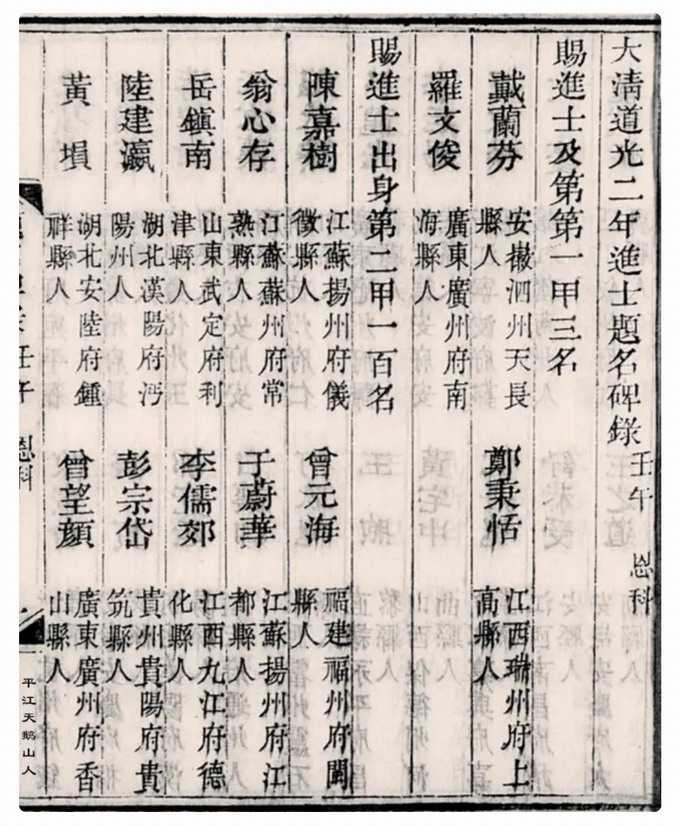 大淸道光二年進士題名碑錄 壬午 恩科
賜進士及第第一甲三名
戴蘭芬 安徽泗州天長縣人 鄭秉恬 江西瑞州府上高縣人
羅文俊 廣東廣州府南海縣人
賜進士出身第二甲一百名
陳嘉樹 江蘇揚州府儀徵縣人 曾元海 福建福州府閩縣人
翁心存 江蘇蘇州府常熟縣人 于蔚華 江蘇揚州府江都縣人
岳鎮南 山東武定府利津縣人 李儒郊 江西九江府德化縣人
陸建瀛 湖北漢陽府沔陽州人 彭宗岱 貴州貴陽府貴筑縣人
黃塤 湖北安陸府鍾祥縣人 曾望顏 廣東廣州府香山縣人
壬午 恩科
平江天鹅山人